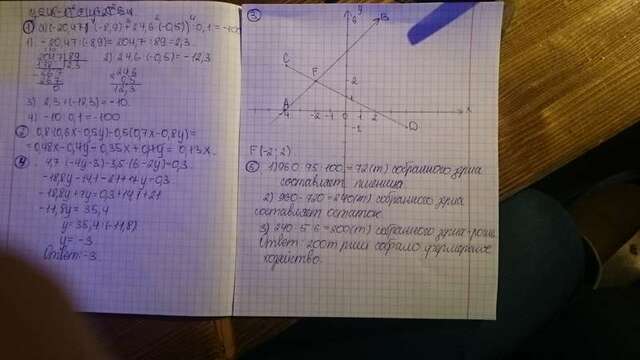 ① а) (-20,47 : (-8,9) + 24,6 · (-0,5)) : 0,1 = -100
1) -20,47 : (-8,9) = 204,7 : 89 = 2,3
204,7 | 89
2,3
2) 24,6 · (-0,5) = -12,3
× 24,6
0,5
12,3
3) 2,3 + (-12,3) = -10
4) -10 : 0,1 = -100
② 0,8(0,6x - 0,5y) - 0,5(0,7x - 0,8y) =
= 0,48x - 0,4y - 0,35x + 0,4y = 0,13x
④ 4,7 · (-4y - 3) - 3,5 · (6 - 2y) = 0,3
-18,8y - 14,1 - 21 + 7y = 0,3
-18,8y + 7y = 0,3 + 14,1 + 21
-11,8y = 35,4
y = 35,4 : (-11,8)
y = -3
Ответ: -3
③
y
B
C
F
2
1
A
-4
-2
-1
0
1
2
x
-1
D
F(-2; 2)
⑤ 1) 960 · 75 : 100 = 72 (т) собранного зерна
составляет пшеница
2) 960 - 720 = 240 (т) собранного зерна
составляет остаток
3) 240 · 5 : 6 = 200 (т) собранного зерна -
Ответ: 200 т собрало фермерское
хозяйство.